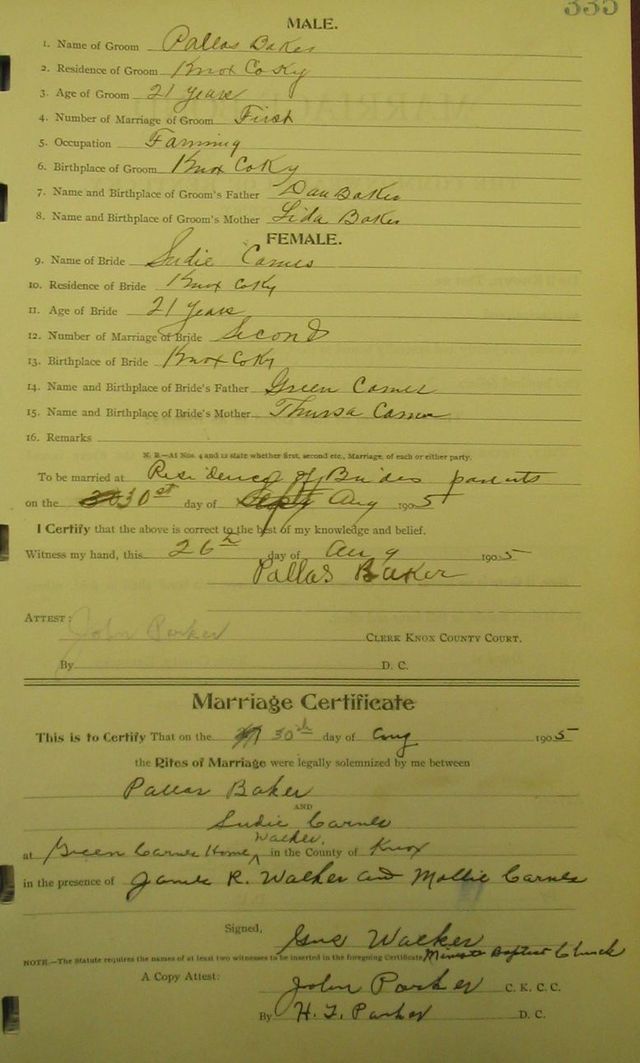 335
MALE.
1. Name of Groom Pallas Baker
2. Residence of Groom Knox Co Ky
3. Age of Groom 21 years
4. Number of Marriage of Groom First
5. Occupation Farming
6. Birthplace of Groom Knox Co Ky
7. Name and Birthplace of Groom's Father Dan Baker
8. Name and Birthplace of Groom's Mother Lida Baker
FEMALE.
9. Name of Bride Sudie Carnes
10. Residence of Bride Knox Co Ky
11. Age of Bride 21 years
12. Number of Marriage of Bride Second
13. Birthplace of Bride Knox Co Ky
14. Name and Birthplace of Bride's Father Green Carnes
15. Name and Birthplace of Bride's Mother Thursa Carnes
16. Remarks
N. B.—At Nos. 4 and 12 state whether first, second etc., Marriage, of each or either party.
To be married at Residence of Brides parents
on the 30st day of Sept Aug 1905
I Certify that the above is correct to the best of my knowledge and belief.
Witness my hand, this 26th day of Aug 1905
Pallas Baker
ATTEST:
John Parker CLERK KNOX COUNTY COURT.
By D. C.
Marriage Certificate
This is to Certify That on the 30th day of Aug 1905
the Rites of Marriage were legally solemnized by me between
Pallas Baker
AND
Sudie Carnes
Walker,
at Green Carnes Home in the County of Knox
in the presence of James R. Walker and Mollie Carnes
Signed, Gus Walker
NOTE.—The Statute requires the names of at least two witnesses to be inserted in the foregoing Certificate. Minister Baptist Church
A Copy Attest: John Parker C. K. C. C.
By H. T. Parker D. C.